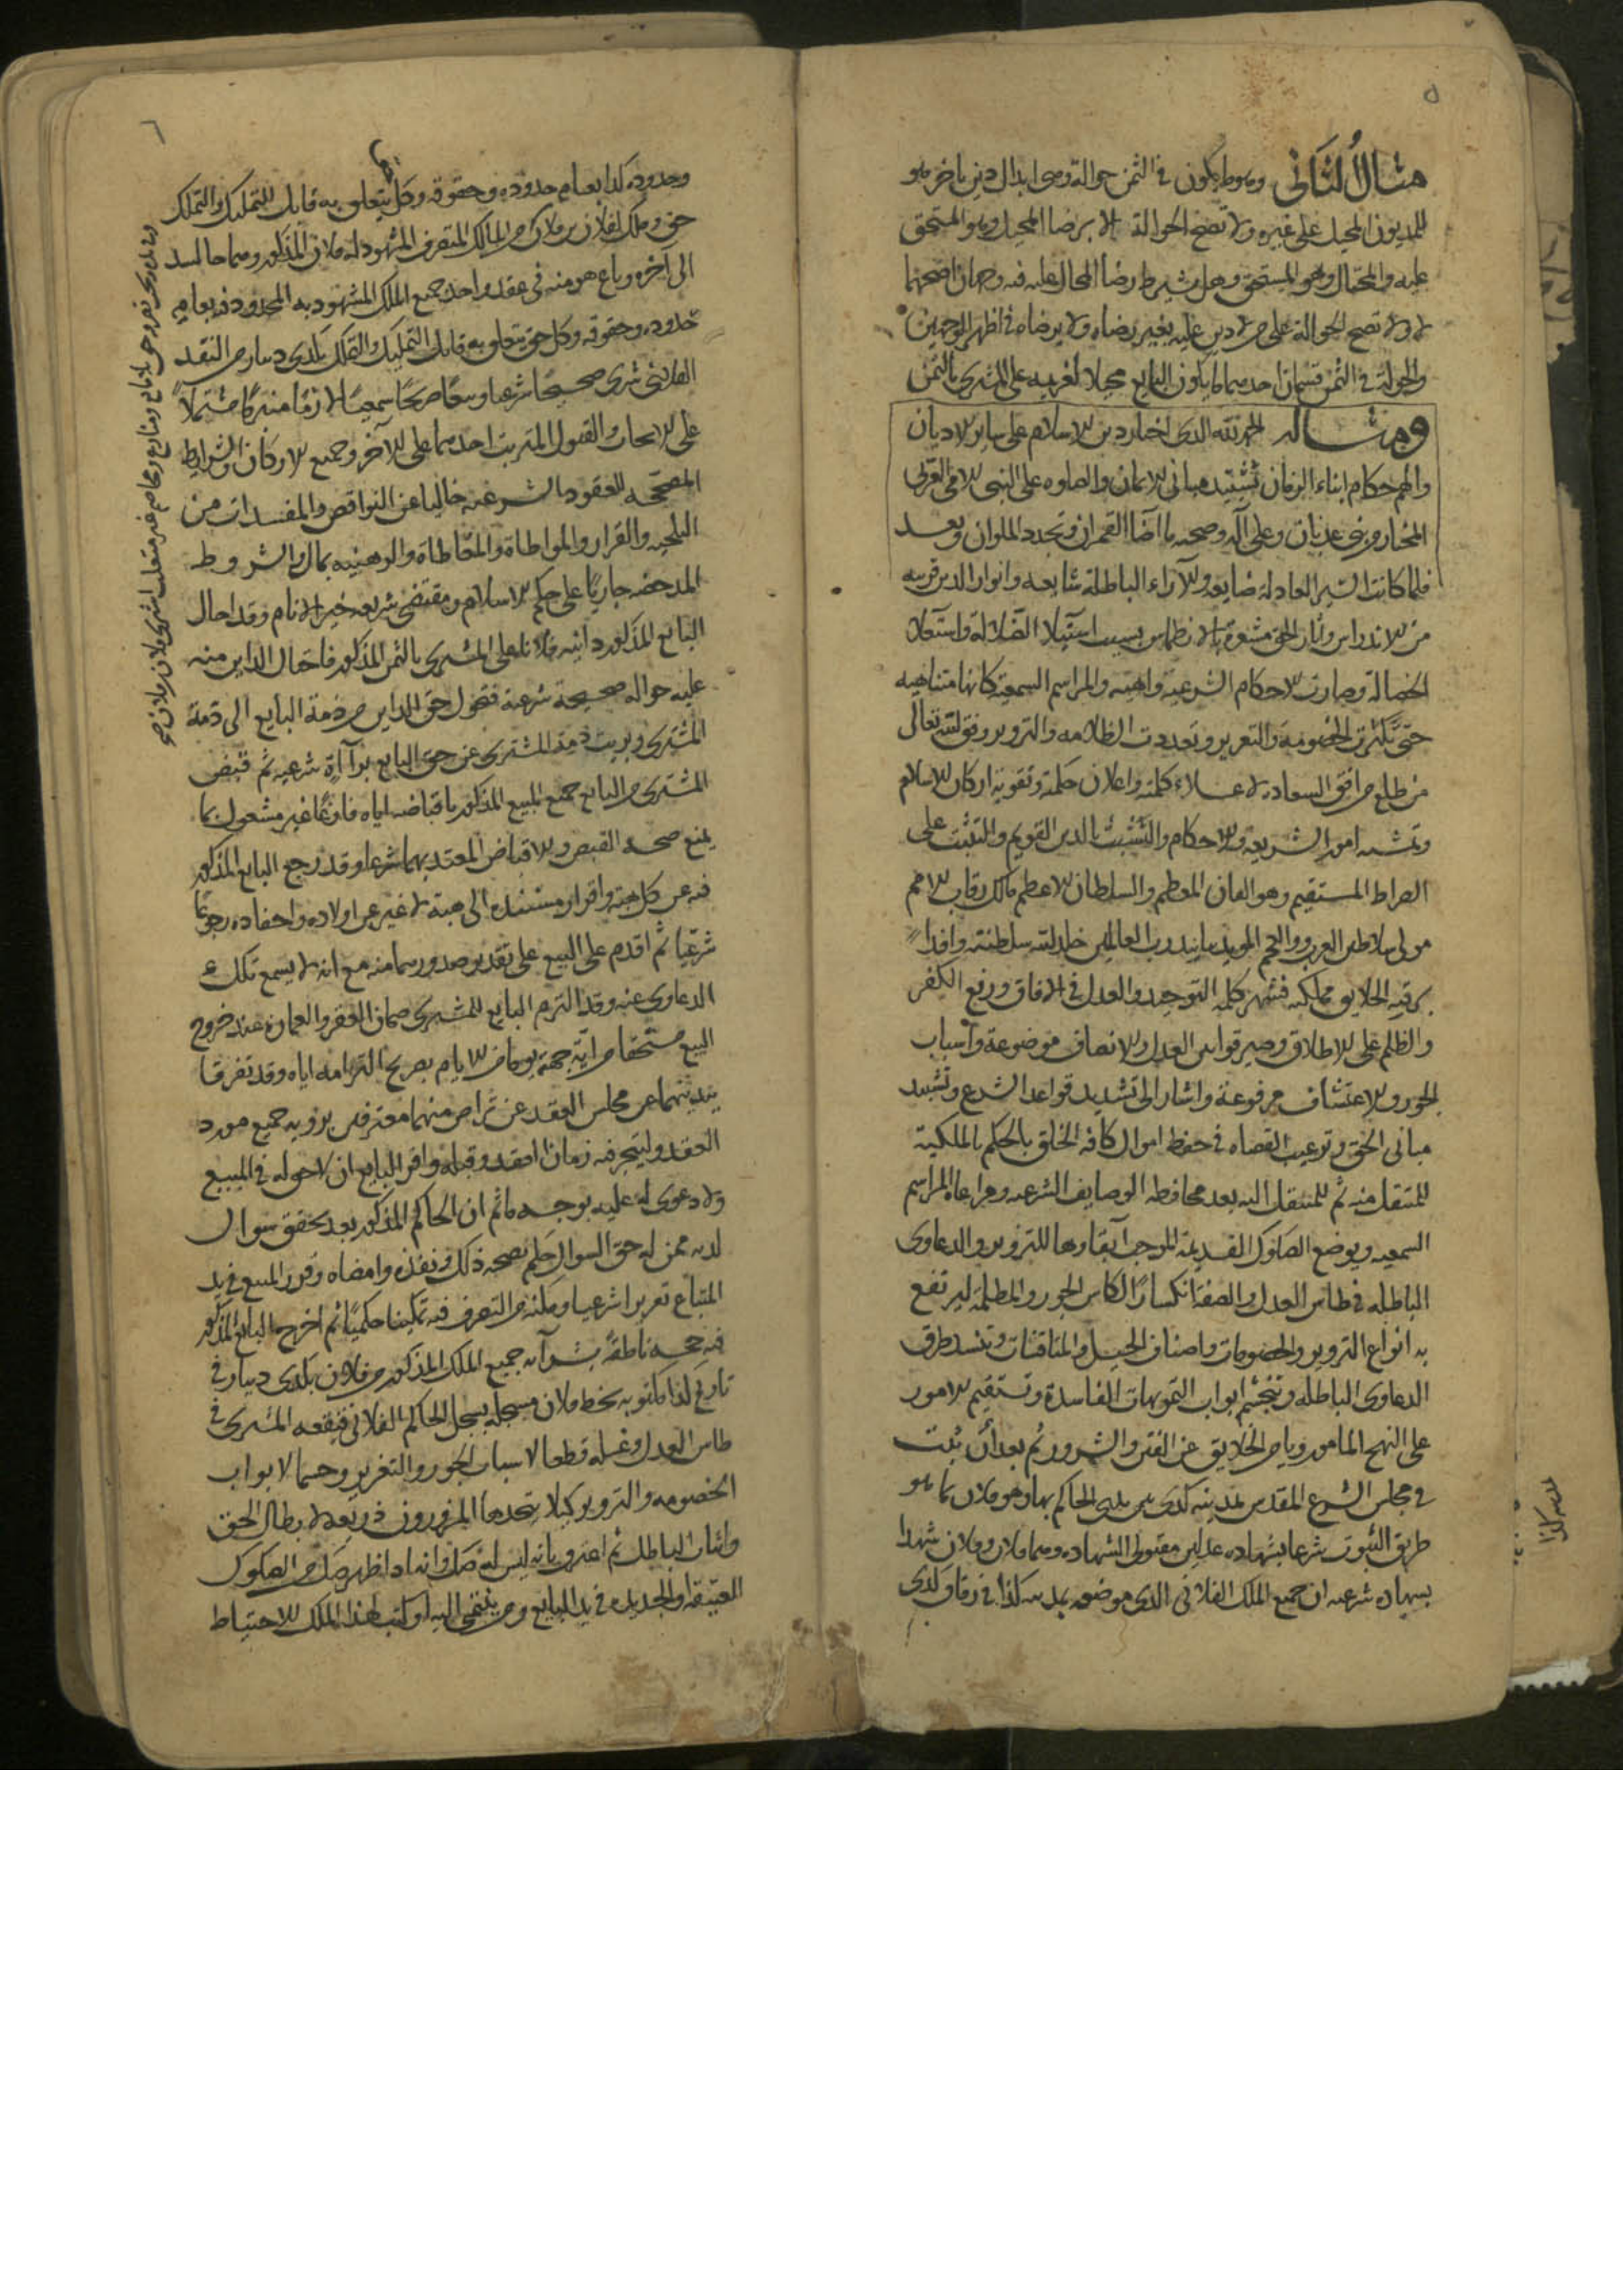 ٥
مثال الثاني وهو ما يكون في الثمن حوالة وهي ابدال دين باخر هو
للمديون المحيل على غيره ولا تصح الحوالة الا برضا المحيل وهو المستحق
عليه والمحتال وهو المستحق وهل يشترط رضا المحال عليه فيه وجهان اصحهما
لا ولا تصح الحوالة على من لا دين عليه بغير رضاه ولا برضاه في اظهر الوجهين
والحوالة في الثمن قسمان احدهما ما يكون البايع محيلا لغريمه على المشتري بالثمن
ومثاله الحمد لله الذي اختار دين الاسلام على ساير الاديان
والهم حكام ابناء الزمان تشييد مباني الايمان والصلوه على النبي الامي العربي
المختار من بني عدنان وعلى آله وصحبه ما اضا القمران وتجدد الملوان وبعد
فلما كانت السير العادلة ضايعه والآراء الباطلة شايعه وانوار الدين قريبه
من الاندراس وآثار الحق مشعرة بالانطماس بسبب استيلا الضلالة واستعلا
الجهالة وصارت الاحكام الشرعية واهية والمراسم السمعية كانها متناهيه
حتى تكثرت الخصومة والتغرير وتعددت الظلامه والتزوير وفق الله تعالى
من طلع من افق السعادة لاعلاء كلمته واعلان حكمته وتقوية اركان الاسلام
وتمشيه امور الشريعة والاحكام والتشبث بالدين القويم والتثبت على
الصراط المستقيم وهو القان المعظم والسلطان الاعظم مالك رقاب الامم
مولى سلاطين العرب والعجم المويد بتاييد رب العالمين خلد الله سلطنته وافدا
برقيه الخلايق مملكته فشهر كلمة التوحيد والعدل في الافاق ورفع الكفر
والظلم على الاطلاق وصير قوانين العدل والانصاف موضوعة واسباب
الجور والاعتساف مرفوعة واشار الى تشديد قواعد الشرع وتشييد
مباني الحق وترغيب القضاه في حفظ اموال كافة الخلق بالحكم بالملكية
للمنتقل منه ثم للمنتقل اليه بعد محافظة الوصايف الشرعيه ومراعاه المراسم
السمعيه ويوضع الصكوك القديمة الموجب ابقاوها للتزوير والدعاوى
الباطله في طاس العدل والصفة انكسارا لكاس الجور والمظلمة ليرتفع
به انواع التزوير والخصومات واصناف الحيل والمناقشات وتنسد طرق
الدعاوى الباطله وتنحسم ابواب التمويهات الفاسدة وتستقيم الامور
على النهج المامور ويامن الخلايق عن الفتن والشرور ثم بعد أن ثبت
في مجلس الشرع المقدس بمدينه كذى بين يدي الحاكم بها وهو فلان بما هو
طريق الثبوت شرعا بشهاده عدلين مقبولي الشهاده وهما فلان وفلان شهدا
بشهاده شرعيه ان جميع الملك الفلاني الذي موضعه بمدينه كذا في زقاق كذى
٦
وحدوده كذا بعامه حدوده وحقوقه وكل حق يتعلق به قابل للتمليك والتملك
حق وملك لفلان بن فلان من المالك المتصرف المشهود له فلان المذكور
الى اخره وباع هو منه في عقد واحد جميع الملك المشهود به المحدود فيه بعامه
حدوده وحقوقه وكل حق يتعلق به قابل التمليك والتملك بكذى دينار من النقد
الفلاني شرى صحيحا شرعيا وبيعا صريحا سمعيا لازما منبرما مشتملا
على الايجاب والقبول المترتب احدهما على الآخر وجميع الاركان والشرايط
المصححه للعقود الشرعيه خاليا عن النواقض والمفسدات من
التلجيه والقرار والمواطاة والمقاطاة والوهنيه بمال والشروط
المدحضه جاريا على حكم الاسلام ومقتضى شريعه خير الانام وقد احال
البايع المذكور داينه فلانا على المشترى بالثمن المذكور فاحتال الداين منه
عليه حوالة صحيحة شرعية فتحول حق الداين من ذمة البايع الى ذمة
المشترى وبريت ذمة المشترى عن حق البايع براءة شرعيه ثم قبض
المشترى من البايع جميع المبيع المذكور باقباضه اياه فارغا غير مشغول بما
يمنع صحة القبض والاقباض المعتد بهما شرعا وقد رجع البايع المذكور
فيه عن كل هبة واقرار مستند الى هبة لا غير عن اولاده واحفاده رجوعا
شرعيا ثم اقدم على البيع على تقدير صدورهما منه مع انه لا يسمع تلك
الدعاوى عنه وقد التزم البايع للمشترى ضمان الفقر والعمارة عند خروج
المبيع مستحقا من أية جهة يوما من الايام بصريح التزامه اياه وقد تفرقا
بدنيهما عن مجلس العقد عن تراض منهما معترفين برؤيه جميع مورد
العقد وليتجر فيه زمان العقد وقبله واقر البايع ان لا حق له في المبيع
ولا دعوى له عليه بوجه ما ثم ان الحاكم المذكور بعد تحقق سوال
لديه ممن له حق السوال حكم بصحه ذلك ونفذه وامضاه وقرر المبيع في يد
المبتاع تقريرا شرعيا ومكنه من التصرف فيه تمكينا حكميا ثم اخرج البايع المذكور
فيه حجه ناطقة بشرآيه جميع الملك المذكور من فلان بكذى دينار في
تاريخ كذا مكتوبه بخط فلان مسجله بسجل الحاكم الفلاني فنقعه المشترى في
طاس العدل وغسله قطعا لاسباب الجور والتغرير وحسما لابواب
الخصومه والتزوير كيلا يتخذها المزورون ذريعة لابطال الحق
واثبات الباطل ثم اعترف بانه ليس له صك وانه اذا اظهر صك من الصكوك
العتيقه والجديده في يد البايع ومن ينتمى اليه او كتب لهذا الملك للاحتياط